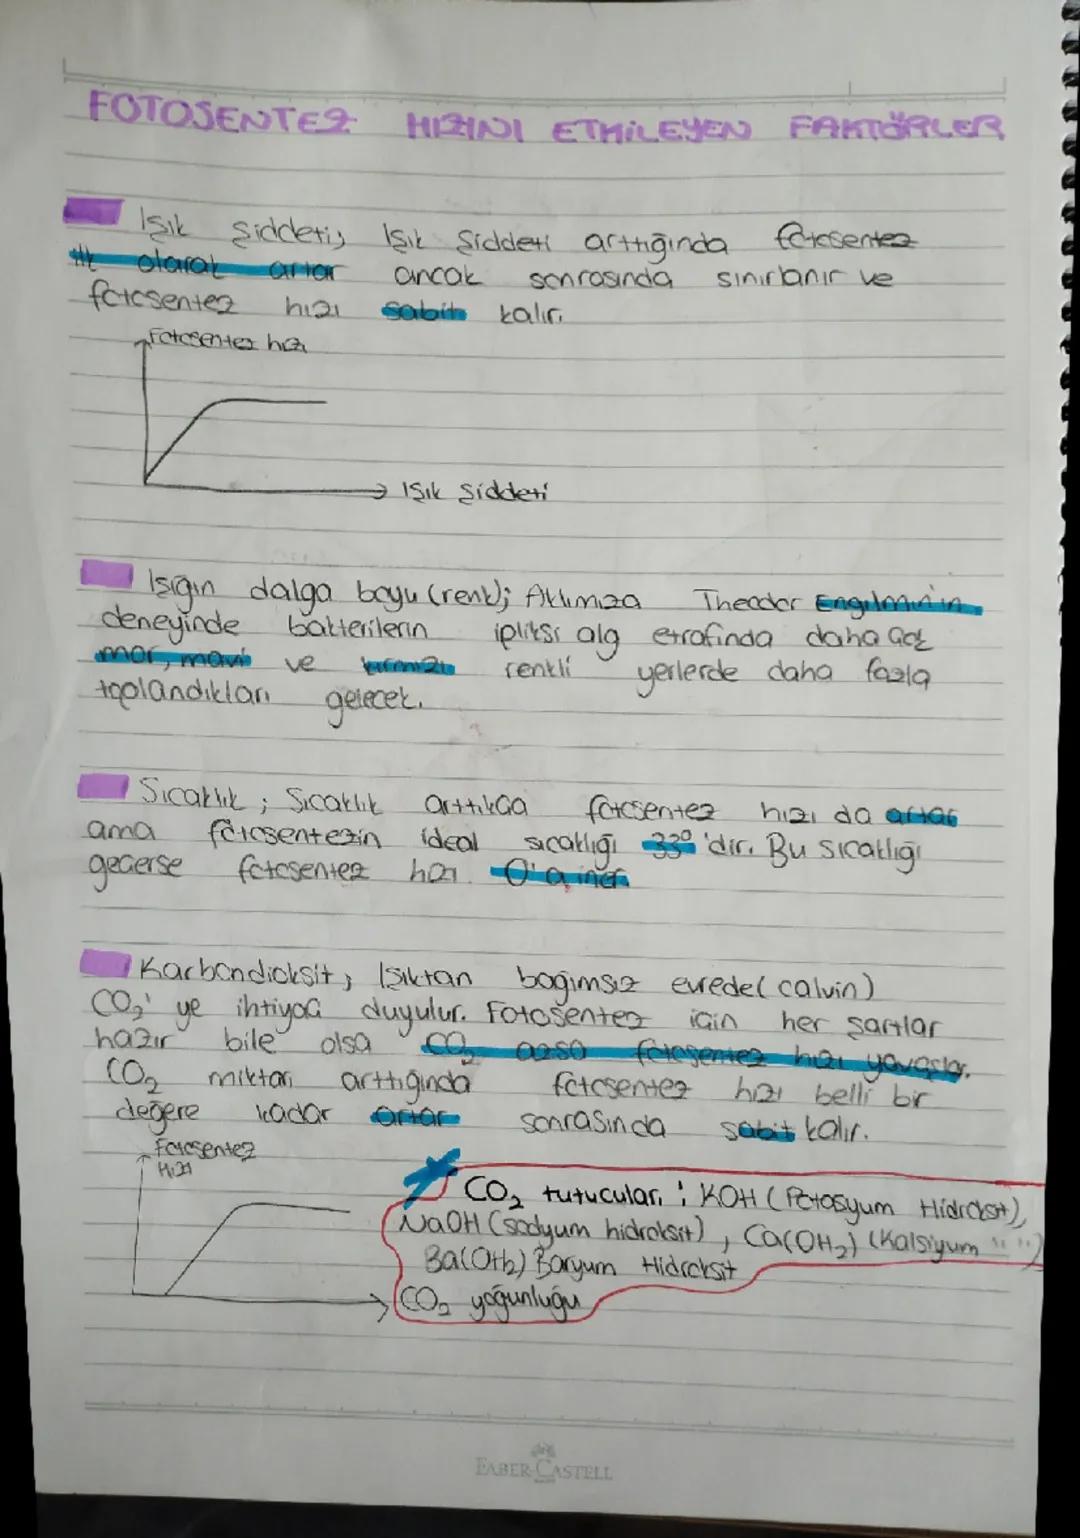 FOTOSENTEZ HIZINI ETKİLEYEN FAKTÖRLER
Işık şiddeti; Işık şiddeti arttığında fotosentez
ilk olarak artar ancak sonrasında sınırlanır ve
fotosentez hızı sabit kalır.
Fotosentez hızı
Işık şiddeti
Işığın dalga boyu (renk); Aklımıza Theodor Engilmın'ın
deneyinde bakterilerin ipliksi alg etrafında daha çok
mor, mavi ve kırmızı renkli yerlerde daha fazla
toplandıkları gelecek.
Sıcaklık ; Sıcaklık arttıkça fotosentez hızı da artar
ama fotosentezin ideal sıcaklığı 33° 'dir. Bu sıcaklığı
geçerse fotosentez hızı 0'a iner.
Karbondioksit; Işıktan bağımsız evrede( calvin)
CO₂' ye ihtiyaç duyulur. Fotosentez için her şartlar
hazır bile olsa CO₂ azsa fotosentez hızı yavaşlar.
CO₂ miktarı arttığında fotosentez hızı belli bir
değere kadar artar sonrasında sabit kalır.
Fotosentez
Hızı
CO₂ tutucuları : KOH (Potasyum Hidroksit),
NaOH (sodyum hidroksit) , Ca(OH₂) (Kalsiyum " ")
Ba(OH₂) Baryum Hidroksit
CO₂ yoğunluğu
FABER-CASTELL